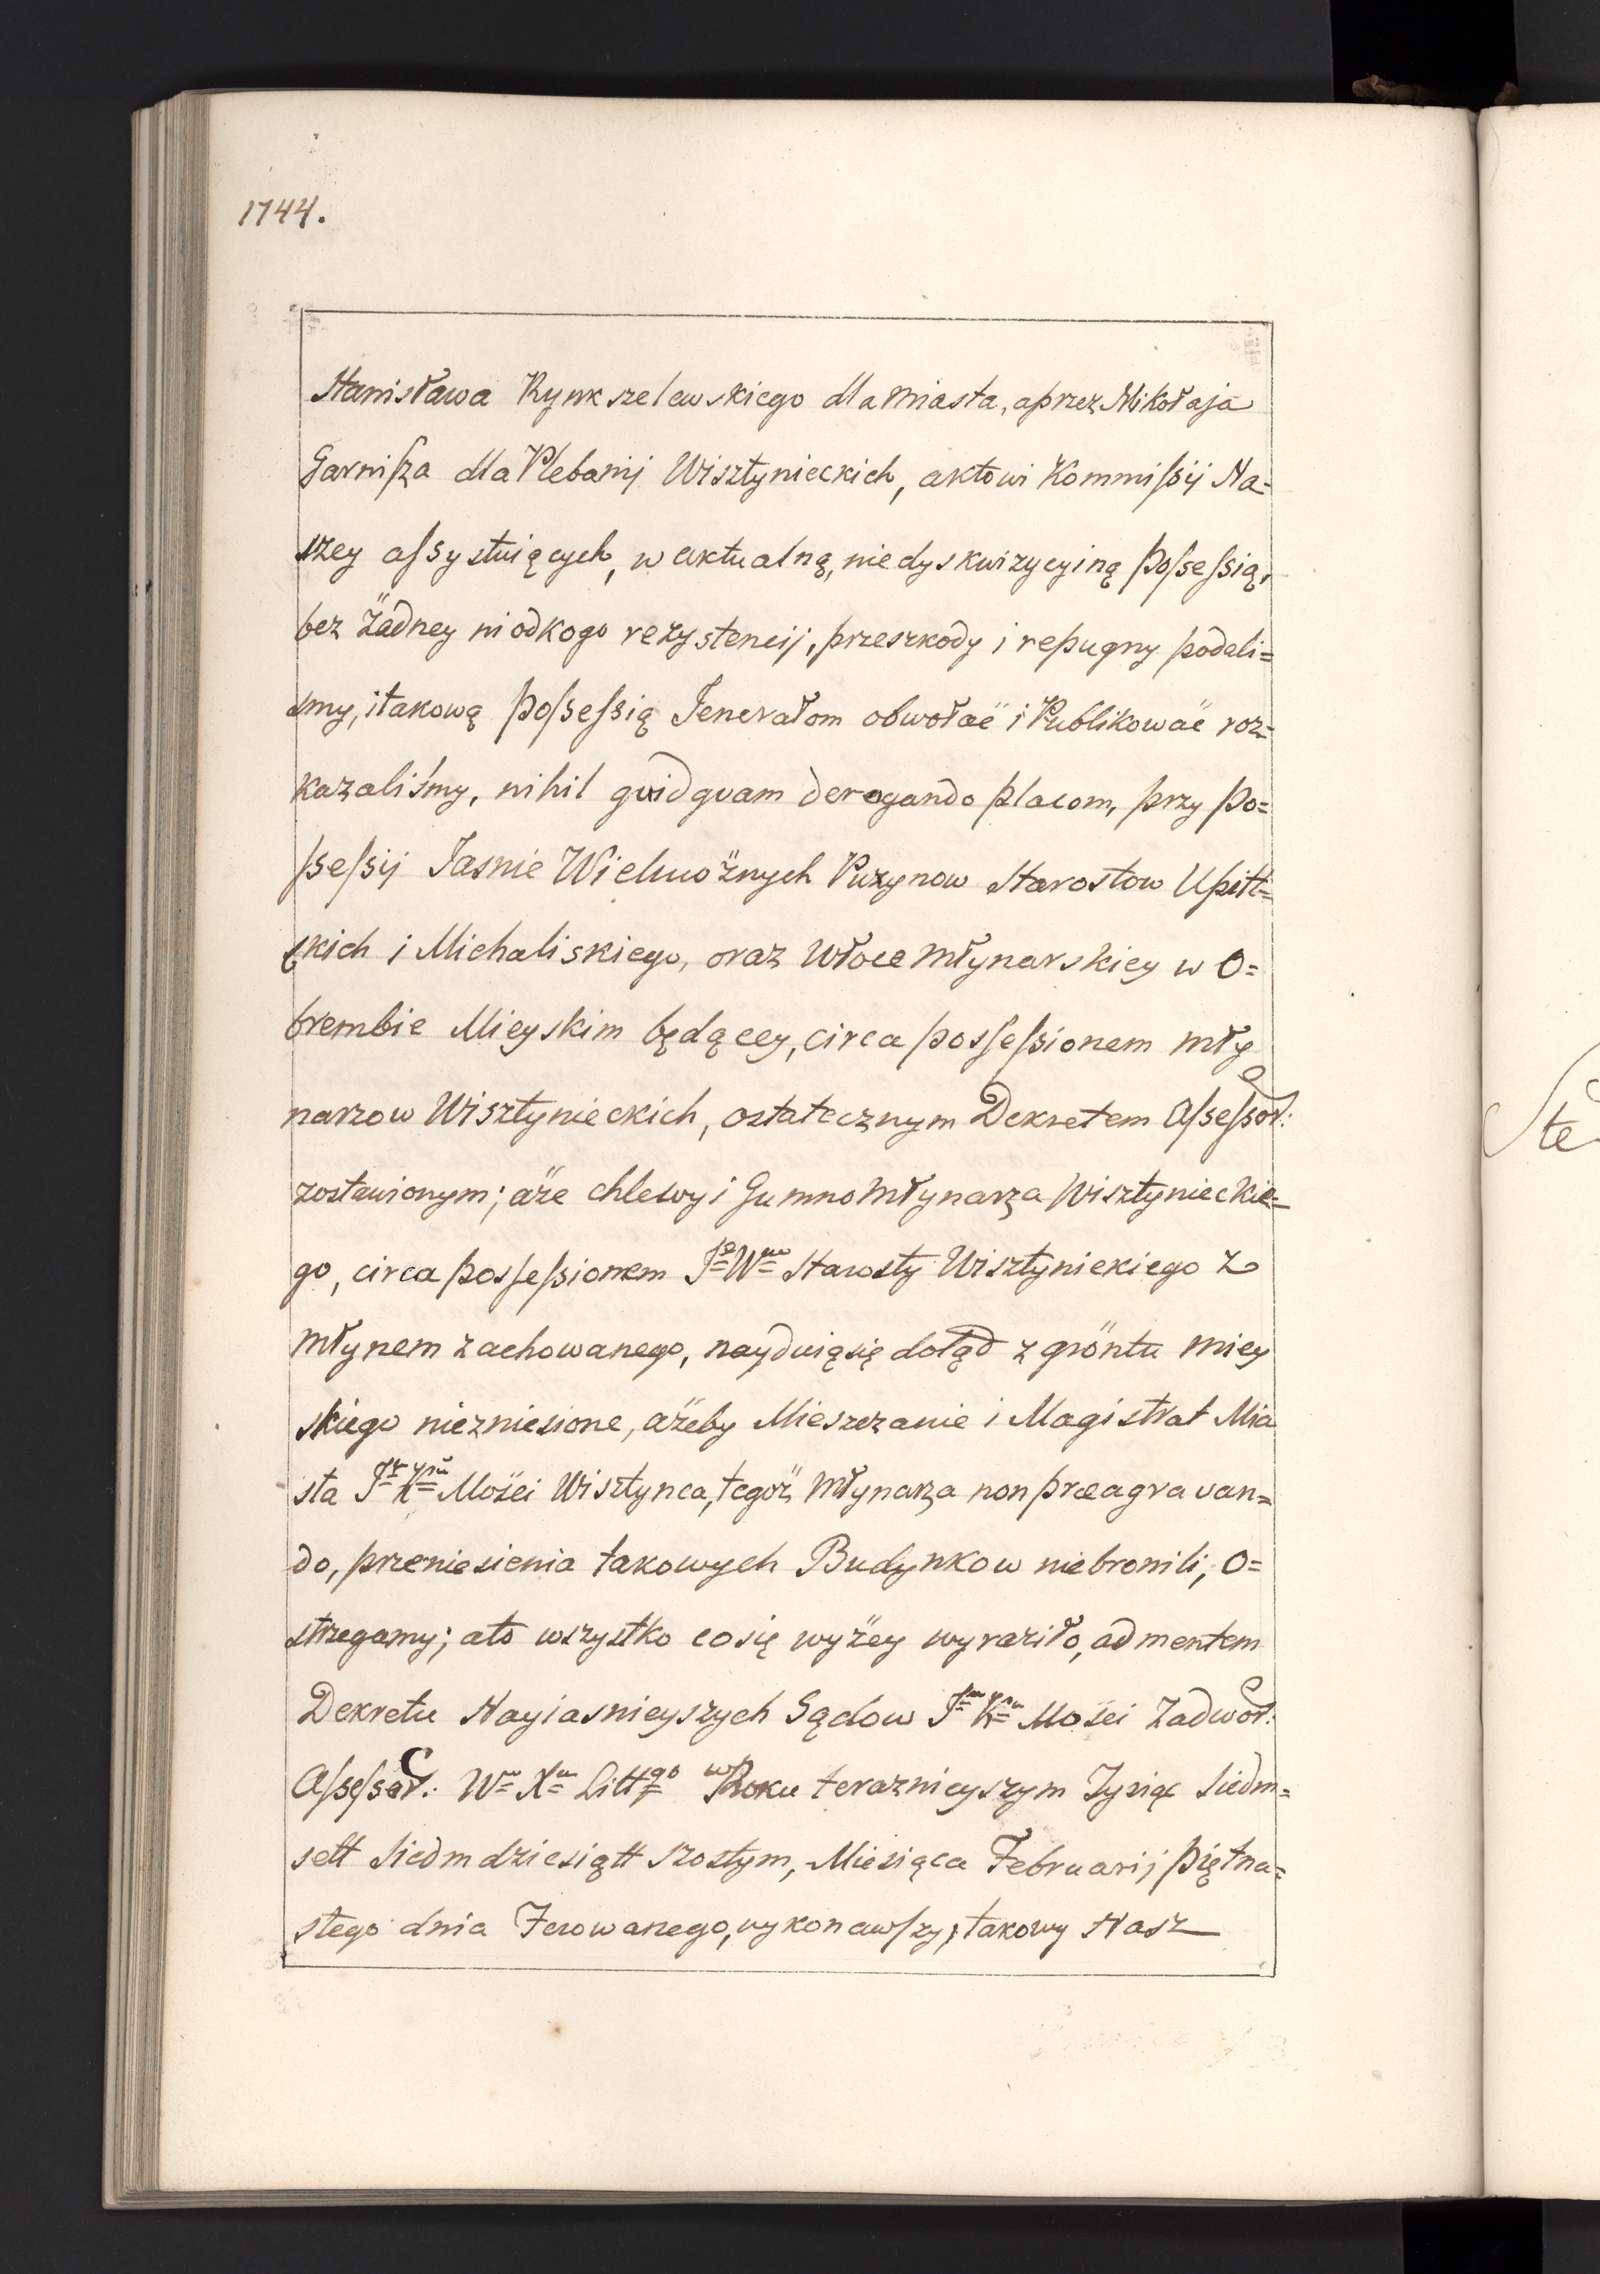 1744.
Stanisława Rynkszelewskiego dla Miasta, a przez Mikołaja
Garniſza dla Plebanij Wisztynieckich, aktowi Kommiſsij Na=
szey aſsystuiących, w aktualną, nie dyskwizycyiną poſseſsią,
bez żadney ni odkogo rezystencij, przeszkody i repugny podali=
smy, i takową poſseſsią Jenerałom obwołać i Publikować roz=
kazaliśmy, nihil quidquam derogando placom, przy po=
ſseſsij Jasnie Wielmożnych Puzynow Starostow Upitt=
skich i Michaliskiego, oraz Włoce Młynarskiey w O=
brembie Mieyskim będącey, circa posſeſsionem mły
narzow Wisztynieckich, ostatecznym Dekretem Aſseſsor:
zostawionym; aże chlewy i Gumno Młynarza Wisztynieckie=
go, circa posſeſsionem Jᵒ Wᵐ Starosty Wisztynickiego z
Młynem zachowanego, nayduią się dotąd z gröntu miey
skiego niezniesione, ażeby Mieszczanie i Magistrat Mia
sta Mości Wisztynca, tegoż Młynarza non præagravan=
do, przeniesienia takowych Budynkow niebronili, O=
strzegamy; ato wszystko co się wyżey wyraziło, ad mentem
Dekretu Nayiasnieyszych Sądow Mości Zadwor:
Aſseſsor: Wᵘ Xᵘ Littᵍᵒ w Roku teraznieyszym Tysiąc siedm=
sett siedmdziesiątt szostym, Miesiąca Februarij piętna=
stego dnia Ferowanego, wykonawſzy, takowy Nasz
Ste